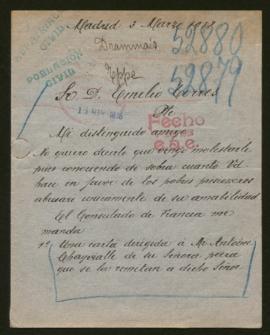 Madrid 3 Marzo 1918
Drammais
52880
POBLACION
CIVIL
Eppe
52879
Sr. D. Emilio Torres
Pte
Fecho
Mi distinguido amigo
No quiero decirle que vengo molestarle
pues conociendo de sobra cuanto Vd
hace en favor de los pobres prisioneros
abusari unicamente de su amabilidad
El Consulado de Francia me
manda
1º Una carta dirigida á Mr Antoine
de su Señora para
que se la remitan a dicho Señor